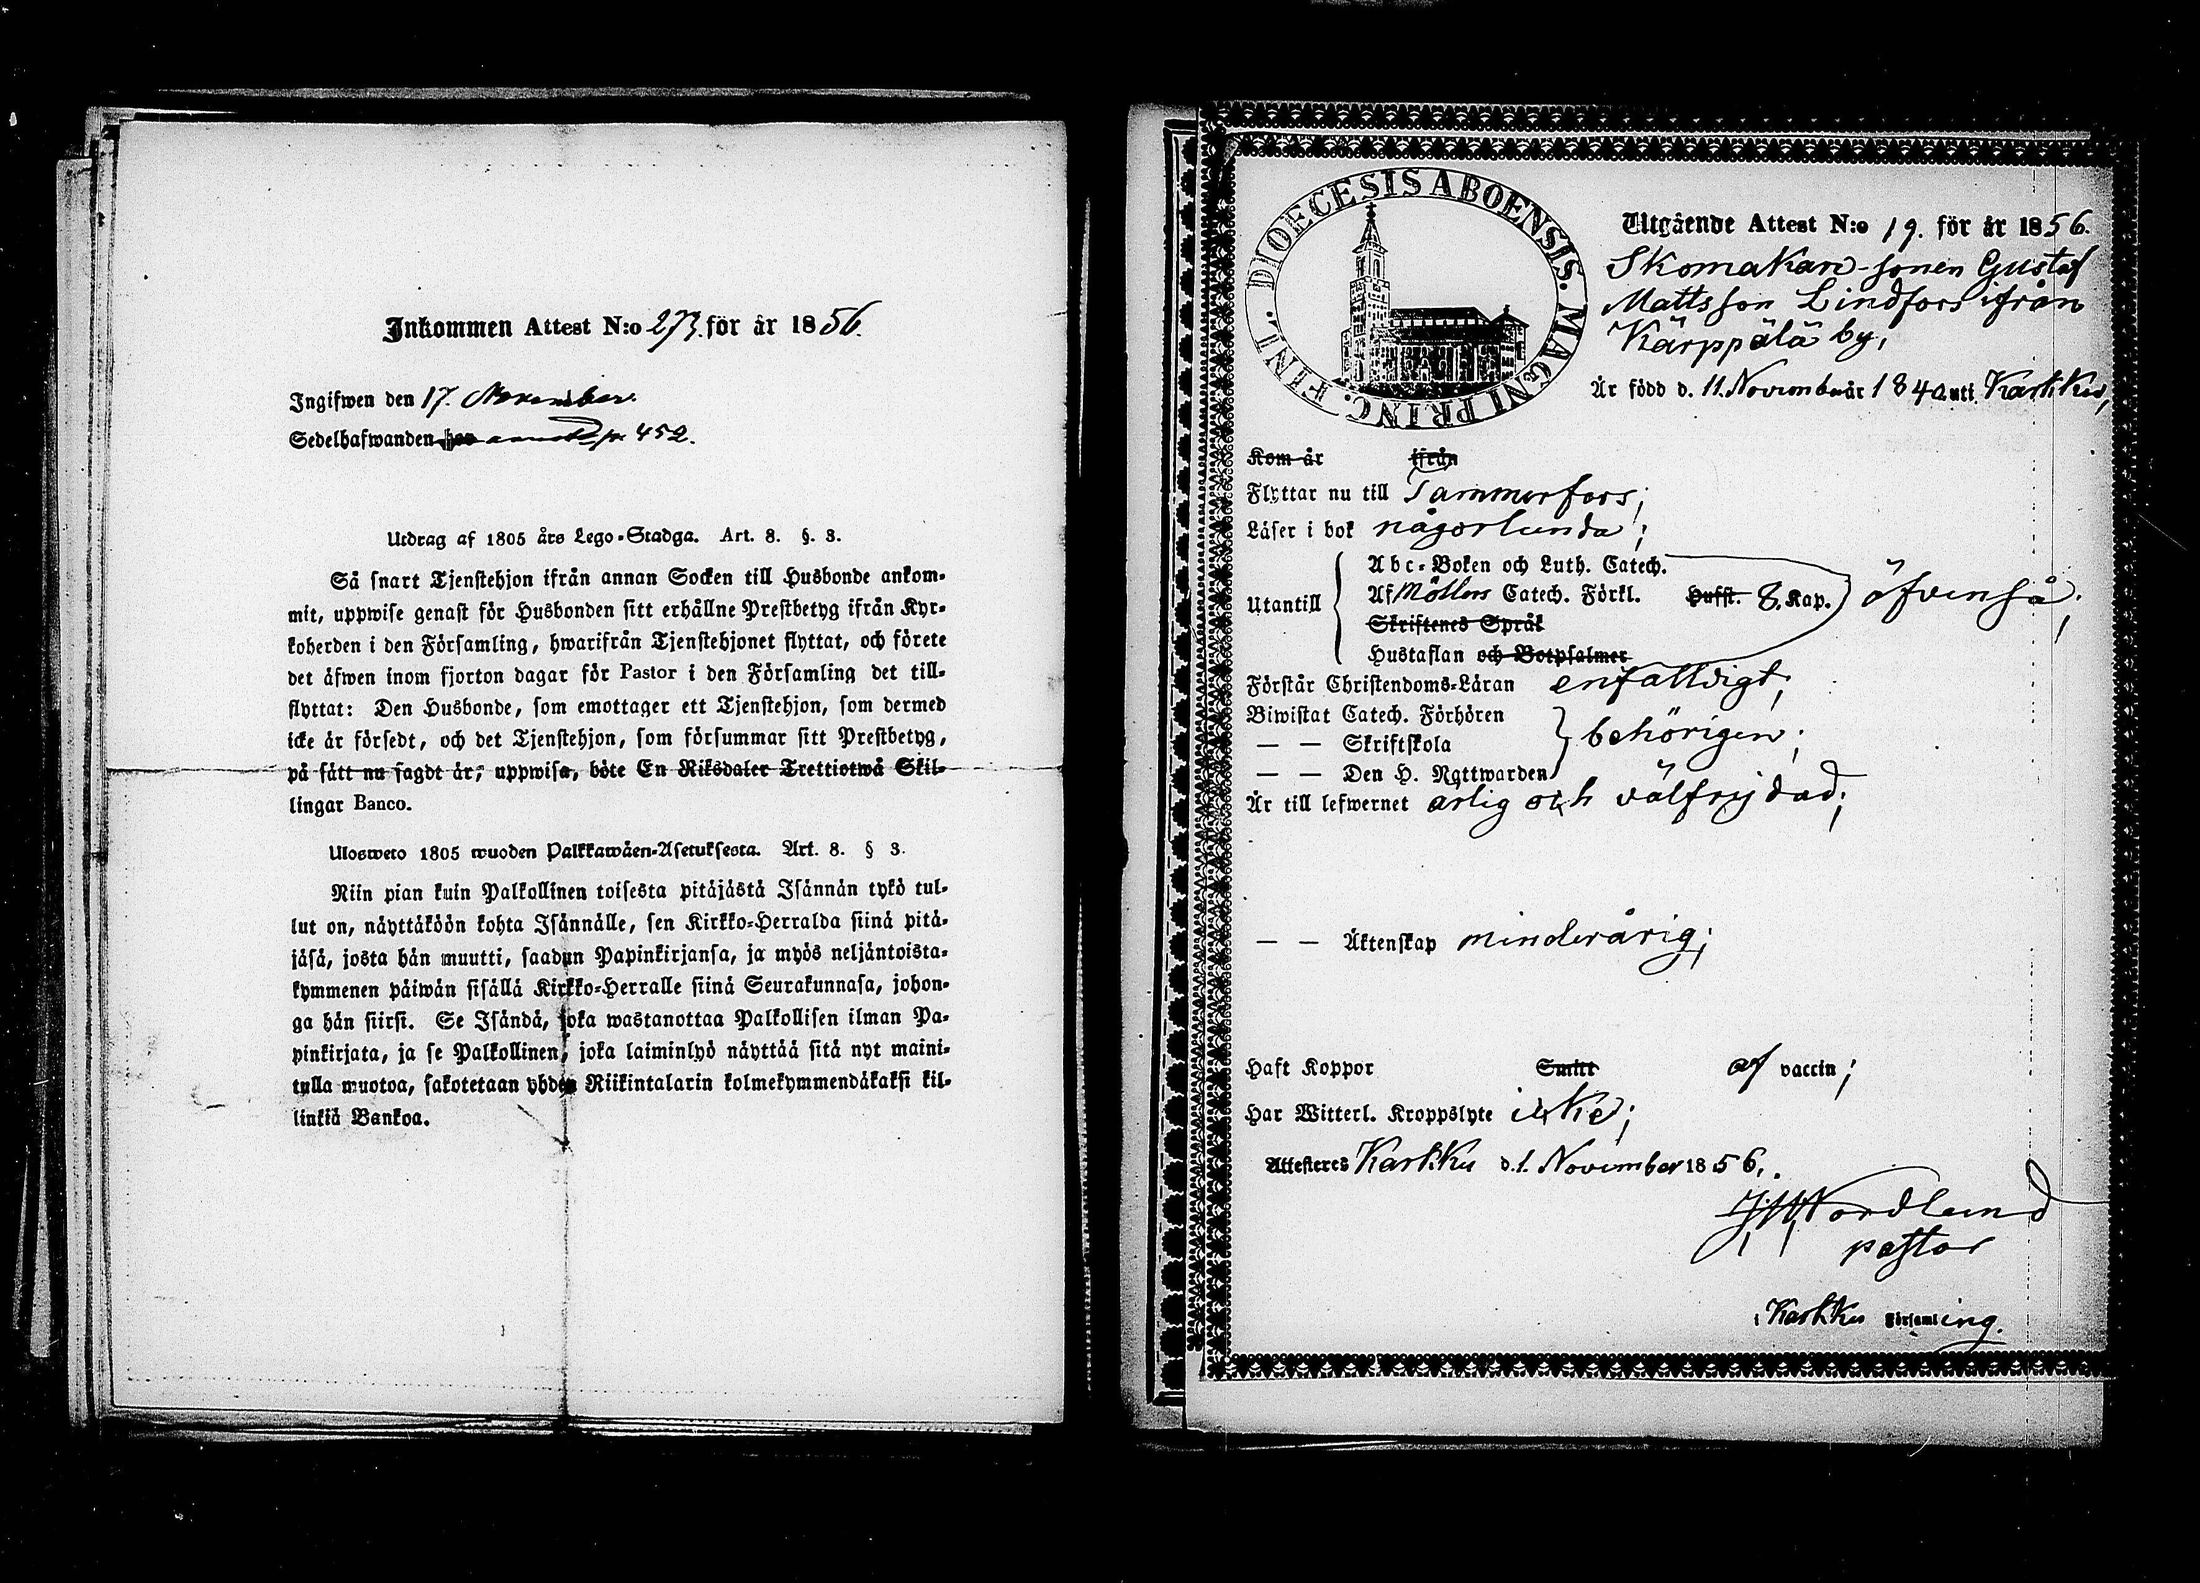 Inkommen Attest N:o 273. för år 1856.
Ingifwen den 17. November.
Sedelhafwanden p. 452.
Utdrag af 1805 års Lego-Stadga. Art. 8. §. 3.
Så snart Tjenstehjon ifrån annan Socken till Husbonde ankom-
mit, uppwise genast för Husbonden sitt erhållne Prestbetyg ifrån Kyr-
koherden i den Församling, hwarifrån Tjenstehjonet flyttat, och förete
det äfwen inom fjorton dagar för Pastor i den Församling det till-
flyttat: Den Husbonde, som emottager ett Tjenstehjon, som dermed
icke är försedt, och det Tjenstehjon, som försummar sitt Prestbetyg,
på sätt nu sagdt är, uppwisa, böte En Riksdaler Trettiotwå Skil-
lingar Banco.
Ulosweto 1805 wuoden Palkkawäen-Asetuksesta. Art. 8. § 3.
Niin pian kuin Palkollinen toisesta pitäjästä Isännän tykö tul-
lut on, näyttäköön kohta Isännälle, sen Kirkko-Herralda siinä pitä-
jäsä, josta hän muutti, saadun Papinkirjansa, ja myös neljäntoista-
kymmenen päiwän sisällä Kirkko-Herralle siinä Seurakunnasa, johon-
ga hän siirsi. Se Isändä, joka wastanottaa Palkollisen ilman Pa-
pinkirjata, ja se Palkollinen, joka laiminlyö näyttää sitä nyt maini-
tulla muotoa, sakotetaan yhden Riikintalarin kolmekymmendäkaksi kil-
linkiä Bankoa.
DIOECESIS ABOENSIS. MAGNI PRINC. FINL.
Utgående Attest N:o 19. för år 1856.
Skomakare-sonen Gustaf
Mattsson Lindfors ifrån
Kärppälä by,
Är född d. 11. November år 1840 uti Karkku,
Kom år ifrån
Flyttar nu till Tammerfors;
Läser i bok någorlunda;
Utantill
Abc-Boken och Luth. Catech.
Af Möllers Catech. Förkl. Hufst. 8. Kap. öfven så;
Skriftenes Språk
Hustaflan och Botpsalmer
Förstår Christendoms-Läran enfaldigt;
Biwistat Catech. Förhören
— — Skriftskola behörigen;
— — Den H. Nattwarden
Är till lefwernet ärlig och välfrejdad;
— — Äktenskap minderårig;
Haft Koppor Smitt af vaccin;
Har Witterl. Kroppslyte icke;
Attesteres Karkku d. 1. November 1856.
Nordlund
pastor
i Karkku Församling.